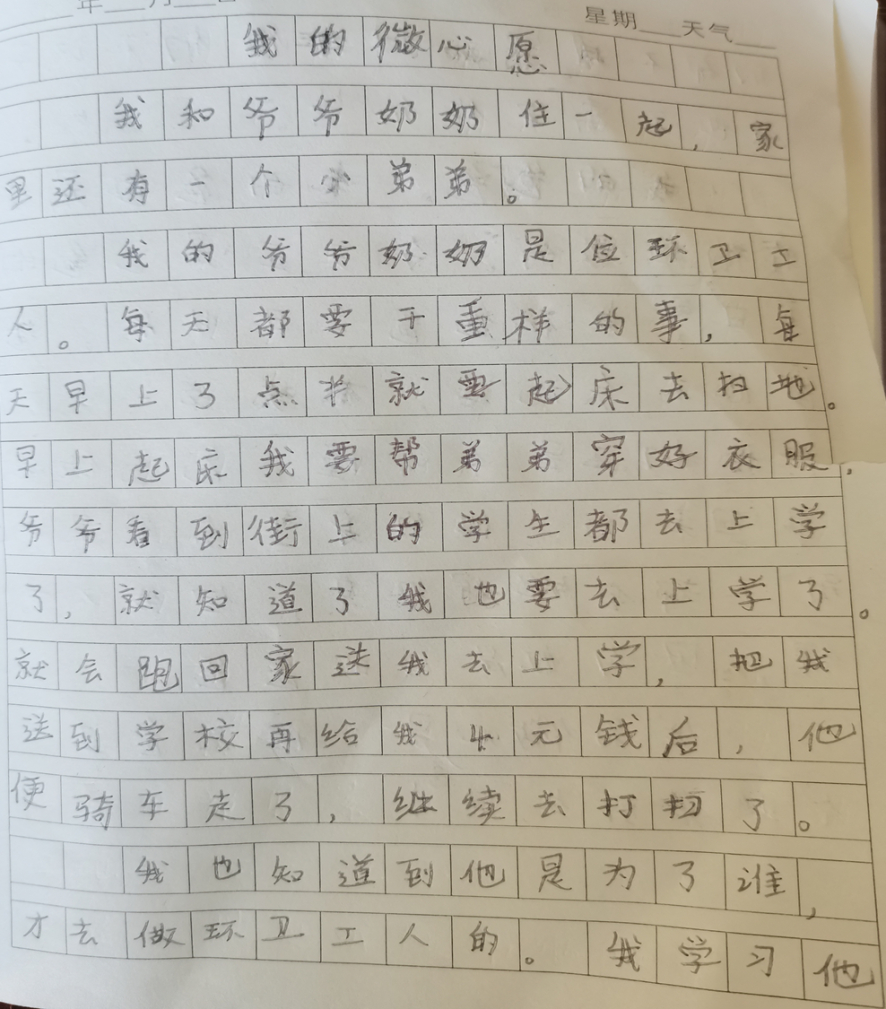 年 月 日 星期 天气
我的微心愿
我和爷爷奶奶住一起，家
里还有一个小弟弟。
我的爷爷奶奶是位环卫工
人。每天都要干重样的事，每
天早上3点半就要起床去扫地。
早上起床我要帮弟弟穿好衣服，
爷爷看到街上的学生都去上学
了，就知道了我也要去上学了。
就会跑回家送我去上学，把我
送到学校再给我4元钱后，他
便骑车走了，继续去打扫了。
我也知道到他是为了谁，
才去做环卫工人的。我学习他